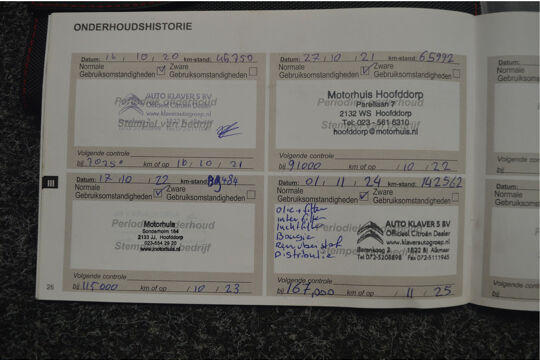 ONDERHOUDSHISTORIE
Datum: 16 / 10 / 20 km-stand:
Normale Gebruiksomstandigheden
Zware Gebruiksomstandigheden
Periodiek onderhoud
AUTO KLAVER 5 BV
Officieel Citroën Dealer
www.klaverautogroep.nl
Stempel van bedrijf
Volgende controle
bij km of op 16 / 10 / 21
Datum: 27 / 10 / 21 km-stand: 65992
Normale Gebruiksomstandigheden
Zware Gebruiksomstandigheden
Motorhuis Hoofddorp
Parellaan 7
2132 WS Hoofddorp
Tel: 023 - 561 6310
hoofddorp@motorhuis.nl
Volgende controle
bij 91000 km of op / 10 / 22
III
Datum: 17 / 10 / 22 km-stand:
Normale Gebruiksomstandigheden
Zware Gebruiksomstandigheden
Periodiek onderhoud
Motorhuis
2133 JJ, Hoofddorp
023-554 29 20
www.motorhuis.nl
Stempel van bedrijf
Volgende controle
bij 115000 km of op / 10 / 23
Datum: 01 / 11 / 24 km-stand: 142562
Normale Gebruiksomstandigheden
Zware Gebruiksomstandigheden
olie + filter
luchtfilter
Bougie
Remvloeistof
Distributie
AUTO KLAVER 5 BV
Officieel Citroën Dealer
www.klaverautogroep.nl
Berenkoog 3 1822 BJ Alkmaar
Tel 072-5208898 Fax 072-5111945
Volgende controle
bij 167,000 km of op / 11 / 25
26